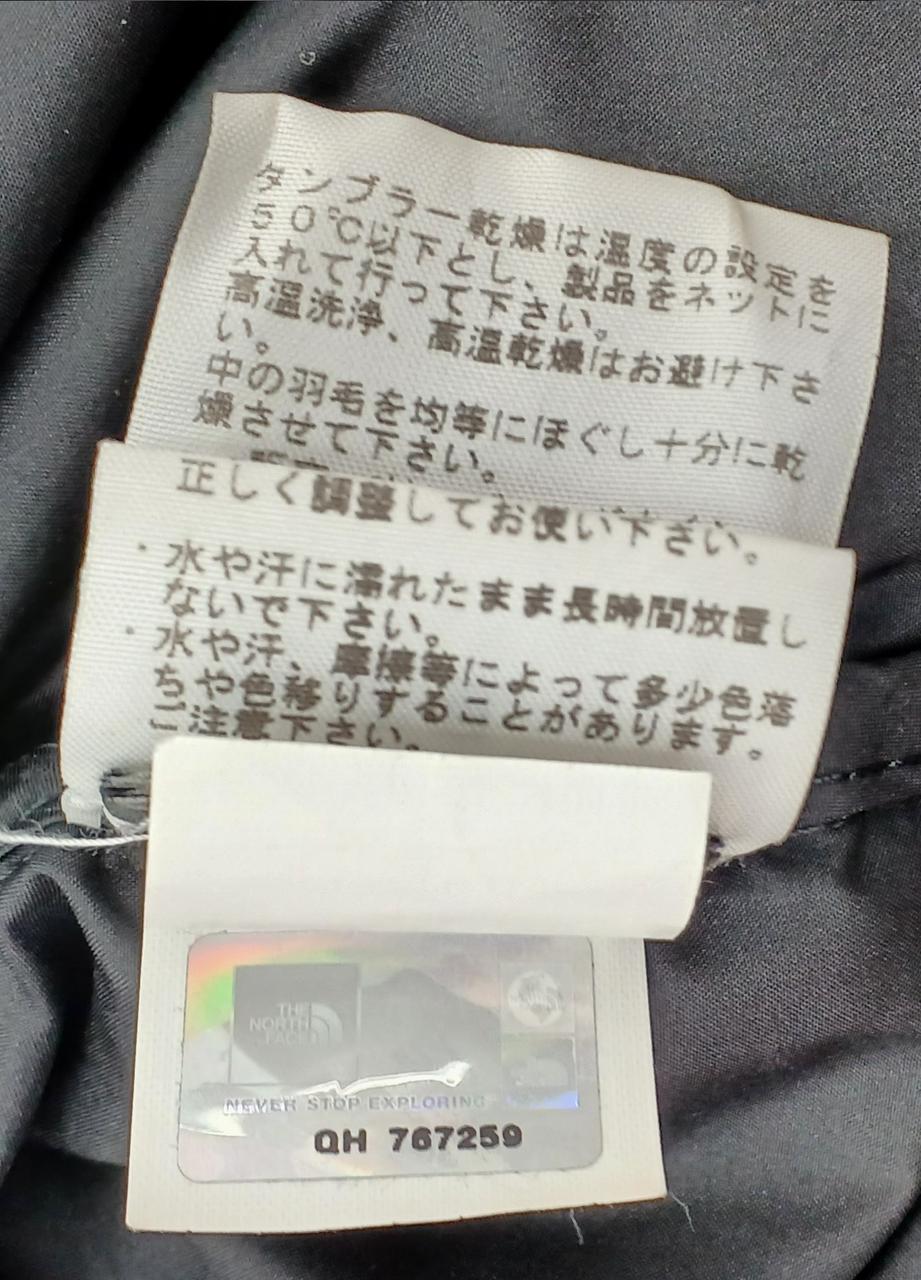 タンブラー乾燥は温度の設定を
50℃以下とし、製品をネットに
入れて行って下さい。
高温洗浄、高温乾燥はお避け下さ
い。
中の羽毛を均等にほぐし十分に乾
燥させて下さい。
正しく調整してお使い下さい。
・水や汗に濡れたまま長時間放置し
ないで下さい。
・水や汗、摩擦等によって多少色落
ちや色移りすることがあります。
ご注意下さい。
THE
NORTH
FACE
NEVER STOP EXPLORING
QH 767259